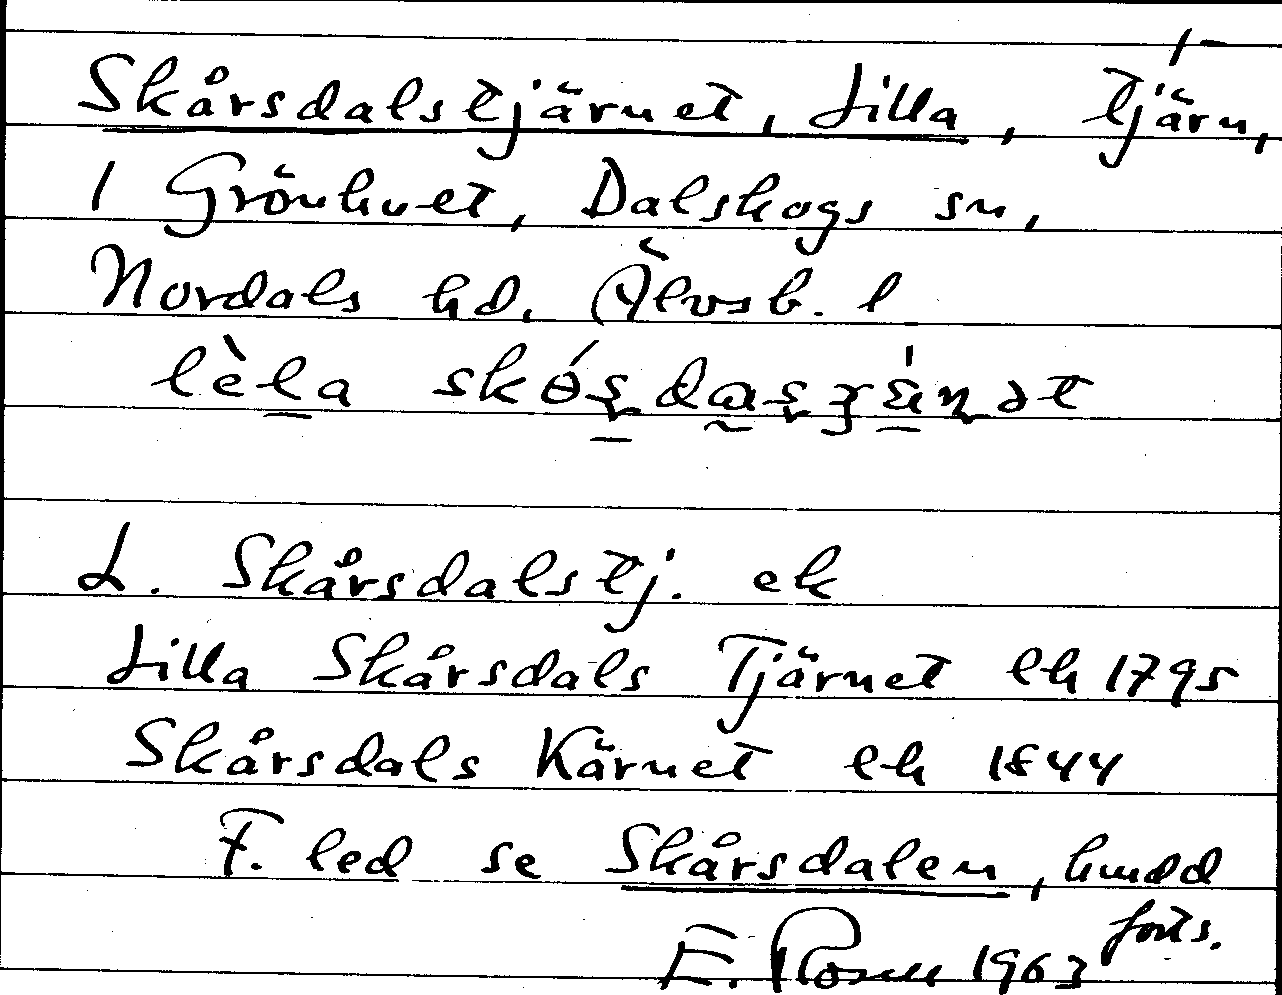 1-
Skårsdalstjärnet, Lilla, tjärn,
1 Grönhuet, Dalskogs sn,
Nordals hd, Älvsb. l
L. Skårsdalstj. ek
Lilla Skårsdals Tjärnet lh 1795
Skårsdals Kärnet lh 1844
F. led se Skårsdalen, hmdd
forts.
E. Rosell 1963